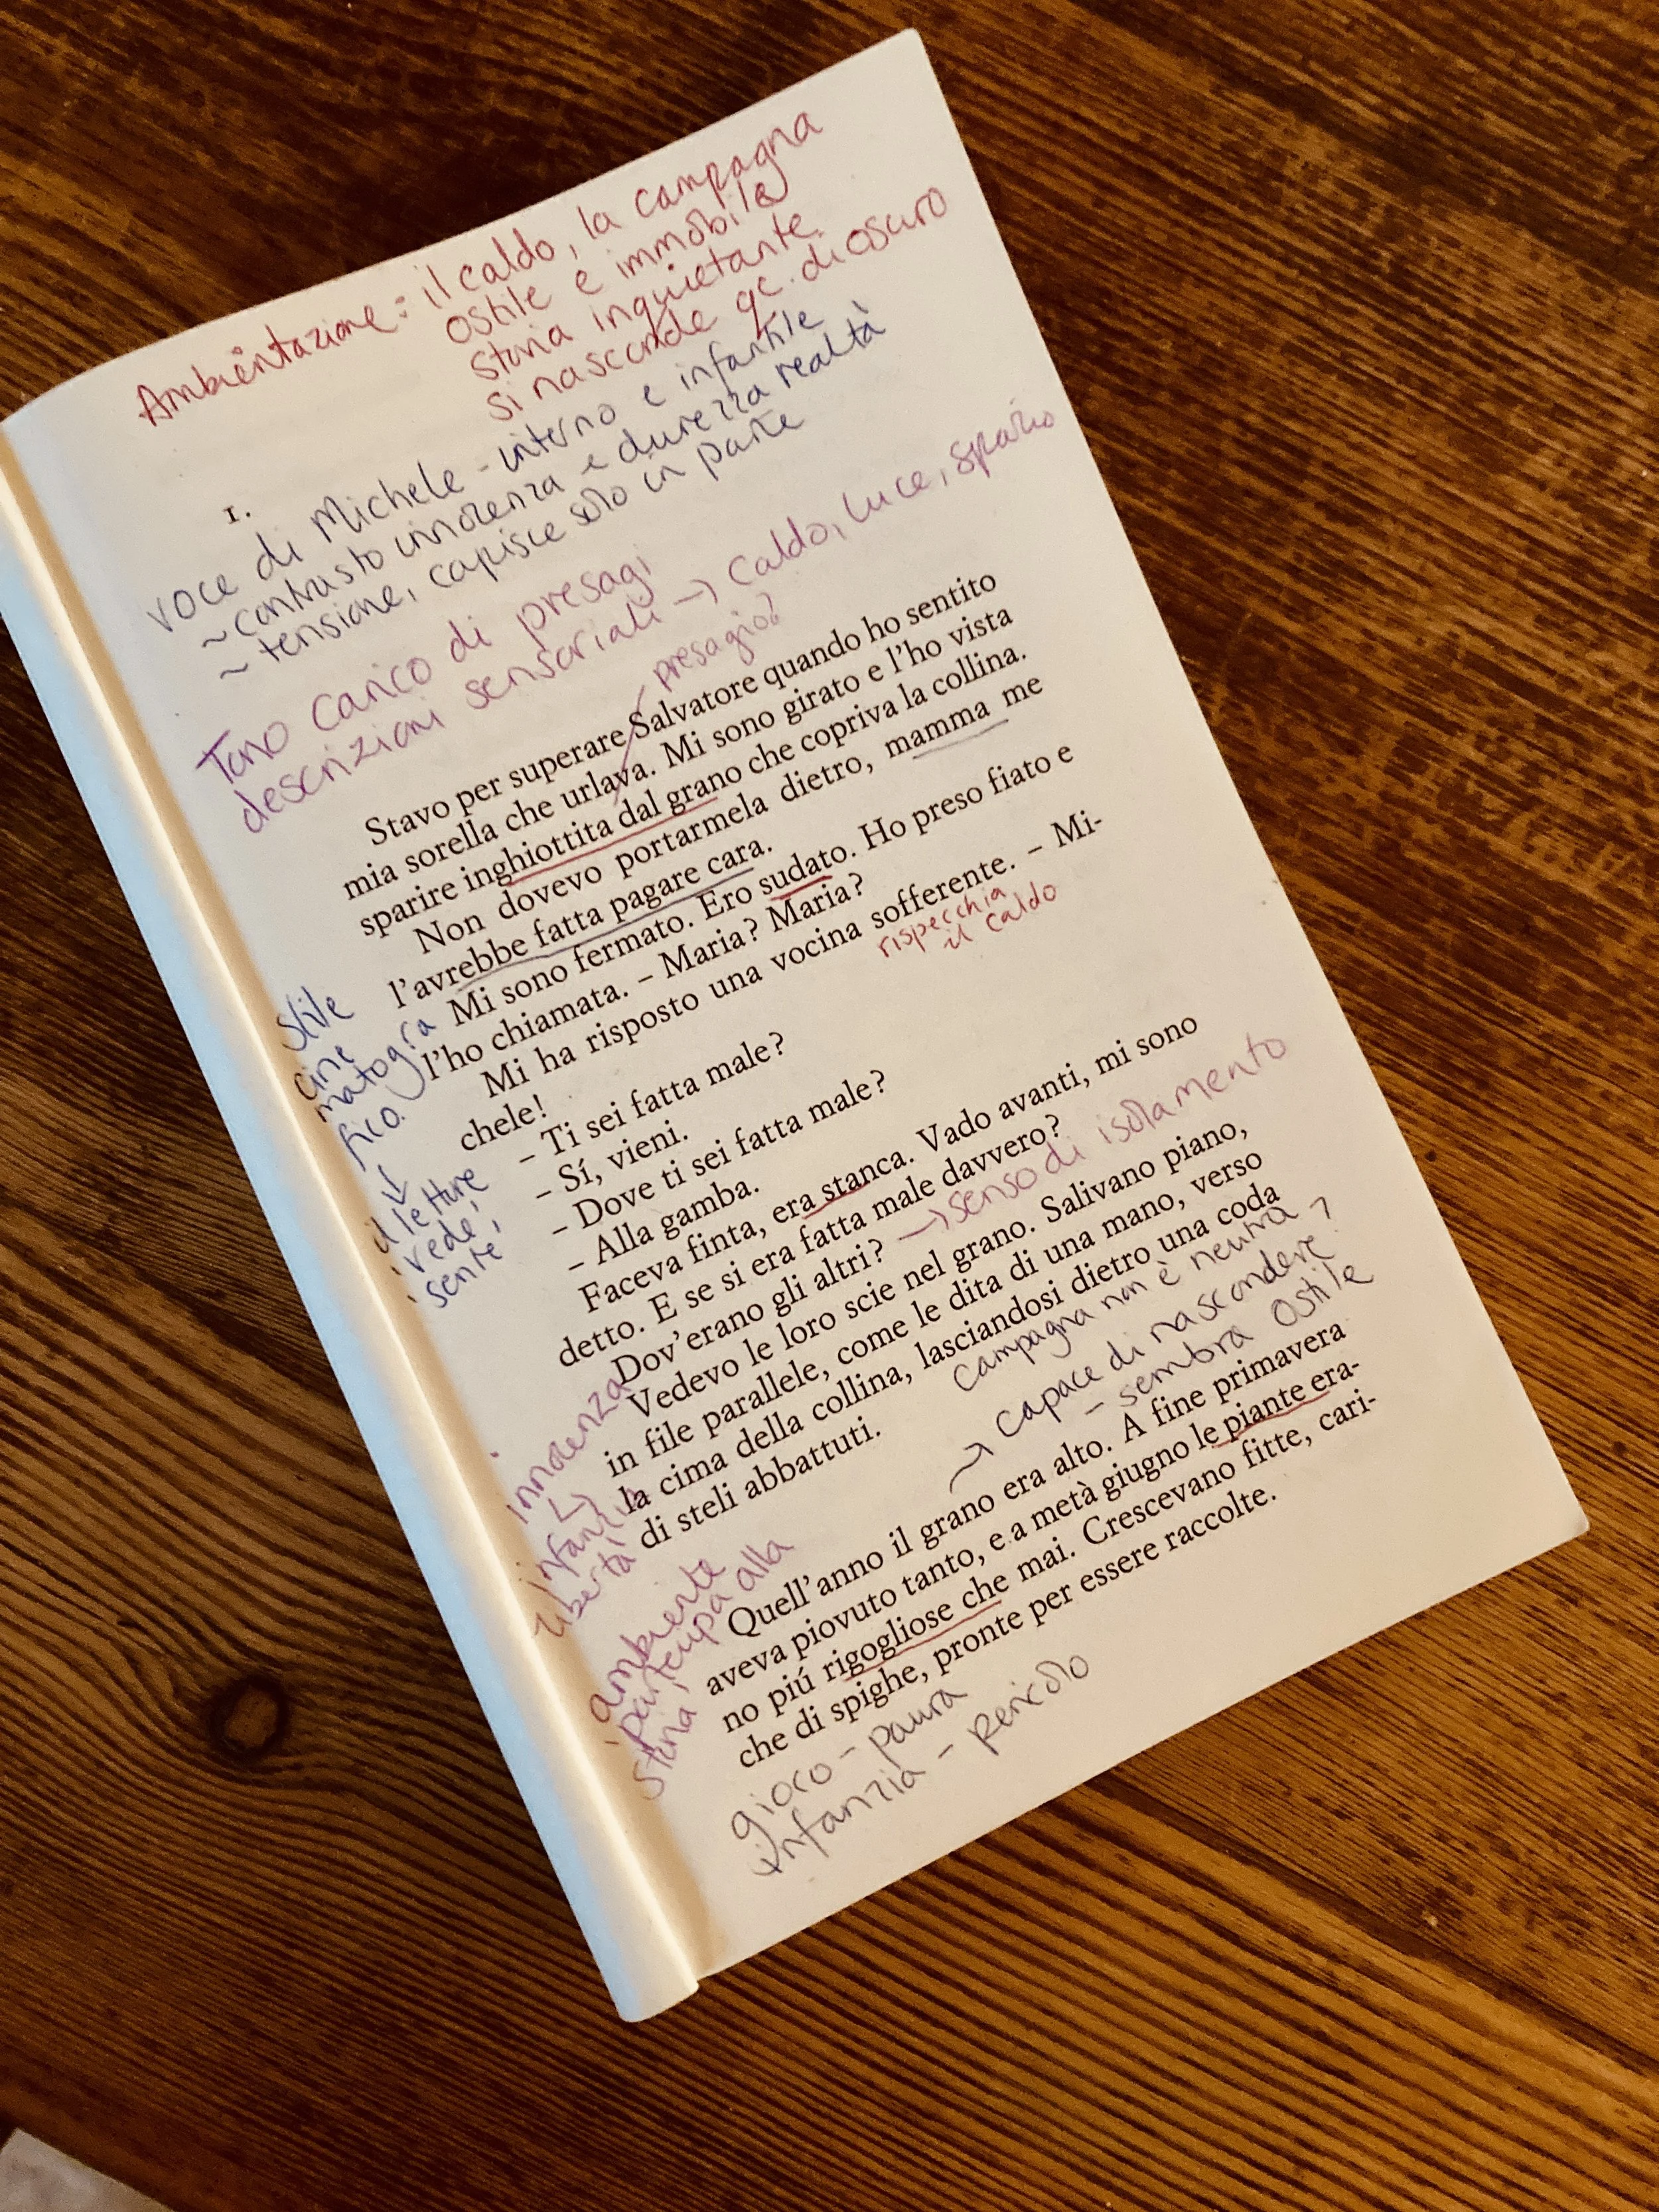 Ambientazione: il caldo, la campagna
ostile e immobile
storia inquietante
si nasconde qc. di oscuro
1.
voce di Michele - interno e infantile
~ contrasto innocenza e durezza realtà
~ tensione, capisce solo in parte
Tono carico di presagi
descrizioni sensoriali → caldo, luce, spazio
presagio?
Stavo per superare Salvatore quando ho sentito
mia sorella che urlava. Mi sono girato e l'ho vista
sparire inghiottita dal grano che copriva la collina.
Non dovevo portarmela dietro, mamma me
l'avrebbe fatta pagare cara.
Mi sono fermato. Ero sudato. Ho preso fiato e
l'ho chiamata. – Maria? Maria?
Mi ha risposto una vocina sofferente. – Mi-
chele!
rispecchia
il caldo
– Ti sei fatta male?
– Sí, vieni.
– Dove ti sei fatta male?
– Alla gamba.
Faceva finta, era stanca. Vado avanti, mi sono
detto. E se si era fatta male davvero?
Dov'erano gli altri?
→ senso di isolamento
Vedevo le loro scie nel grano. Salivano piano,
in file parallele, come le dita di una mano, verso
la cima della collina, lasciandosi dietro una coda
di steli abbattuti.
campagna non è neutra
→ capace di nascondere
– sembra ostile
Quell'anno il grano era alto. A fine primavera
aveva piovuto tanto, e a metà giugno le piante era-
no piú rigogliose che mai. Crescevano fitte, cari-
che di spighe, pronte per essere raccolte.
gioco - paura
infanzia - pericolo
Stile
cine
matogra
fico.
↓
il lettore
vede,
sente
innocenza
↳ infanzia
libertà
ambiente
partecipa alla
storia